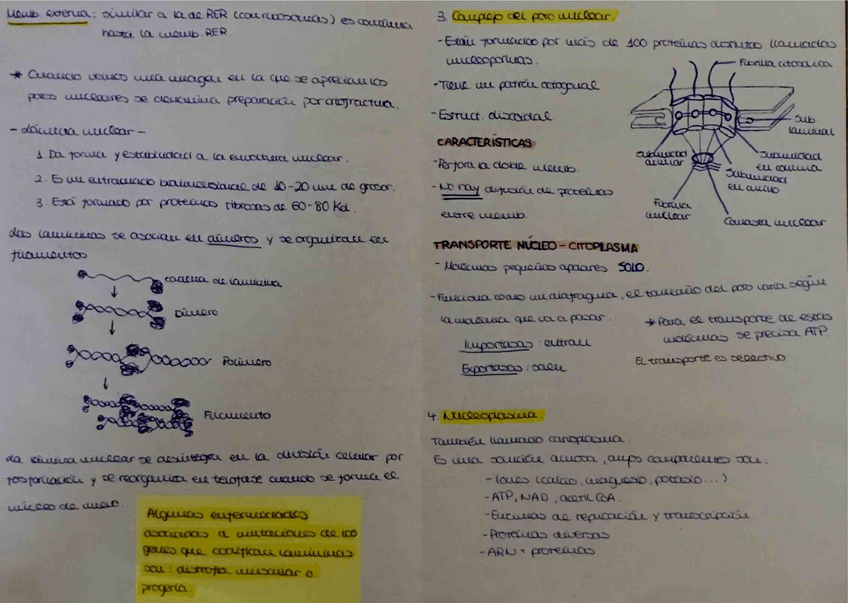 Memb externa: similar a la de RER (con ribosomas) es continua
hasta la memb RER
* Cuando vemos una imagen en la que se aprecian los
poros nucleares se denomina preparación por criofractura.
- Lámina nuclear -
1. Da forma y estabilidad a la envoltura nuclear.
2. Es un entramado bidimensional de 10-20 nm de grosor.
3 Está formado por proteínas fibrosas de 60-80 Kd.
Las láminas se asocian en dímeros y se organizan en
filamentos
cadena de lámina
Dímero
Polímero
Filamento
La lámina nuclear se desintegra en la división celular por
fosforilación y se reorganiza en telofase cuando se forma el
núcleo de nuevo.
Algunas enfermedades
asociadas a mutaciones de los
genes que codifican láminas
son: distrofia muscular o
progeria.
3. Complejo del poro nuclear.
- Están formados por más de 100 proteínas distintas llamadas
nucleoporinas.
- Tiene un patrón octogonal
- Estruct. discoidal
Fibrilla citosólica
Sub. luminal
Subunidad anular
Subunidad en columna
Subunidad en anillo
Fibrilla nuclear
Canasta nuclear
CARACTERÍSTICAS
- Perfora la doble memb.
- No hay difusión de proteínas
entre memb.
TRANSPORTE NÚCLEO - CITOPLASMA
- Moléculas pequeñas apolares SOLO.
- Funciona como un diafragma, el tamaño del poro varía según
la molécula que va a pasar.
Importadas: entran
Exportadas: salen
* Para el transporte de estas
moléculas se precisa ATP.
El transporte es selectivo
4. Nucleoplasma
También llamado carioplasma
Es una solución acuosa, cuyos componentes son:
- Iones (calcio, magnesio, potasio...)
- ATP, NAD, acetil CoA.
- Enzimas de replicación y transcripción
- Proteínas diversas
- ARN + proteínas